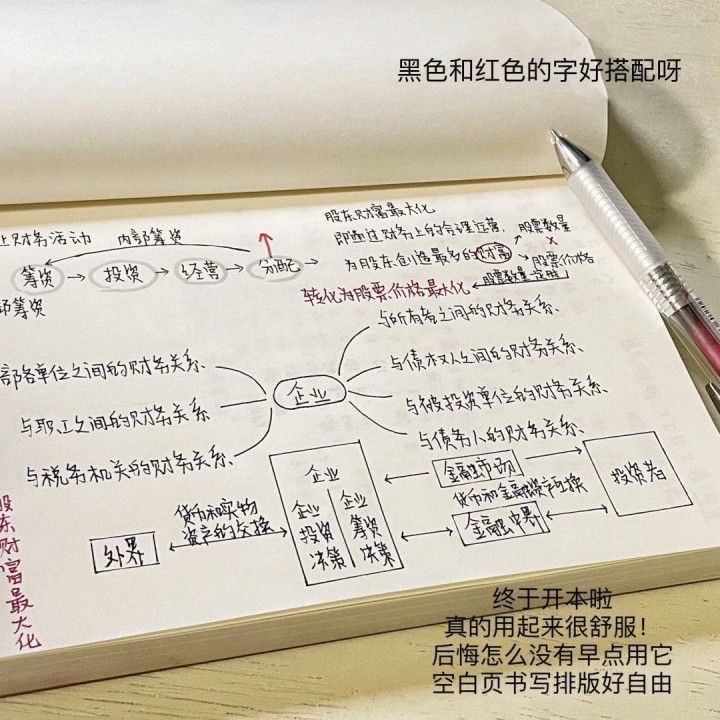 黑色和红色的字好搭配呀
股东财富最大化
财务活动 内部筹资
即通过财务上的合理运营,
股票数量
筹资 → 投资 → 经营 → 分配 →
为股东创造最多的财富
股票价格
股票数量一定时
转化为股票价格最大化
部筹资
与所有者之间的财务关系、
部各单位之间的财务关系、
与债权人之间的财务关系、
企业
与职工之间的财务关系、
与被投资单位的财务关系、
与税务机关的财务关系、
与债务人的财务关系、
股东财富最大化
外界
货币和实物
资产的交换
企业
企业投资决策
企业筹资决策
金融市场
货币和金融资产交换
金融中介
投资者
终于开本啦
真的用起来很舒服！
后悔怎么没有早点用它
空白页书写排版好自由